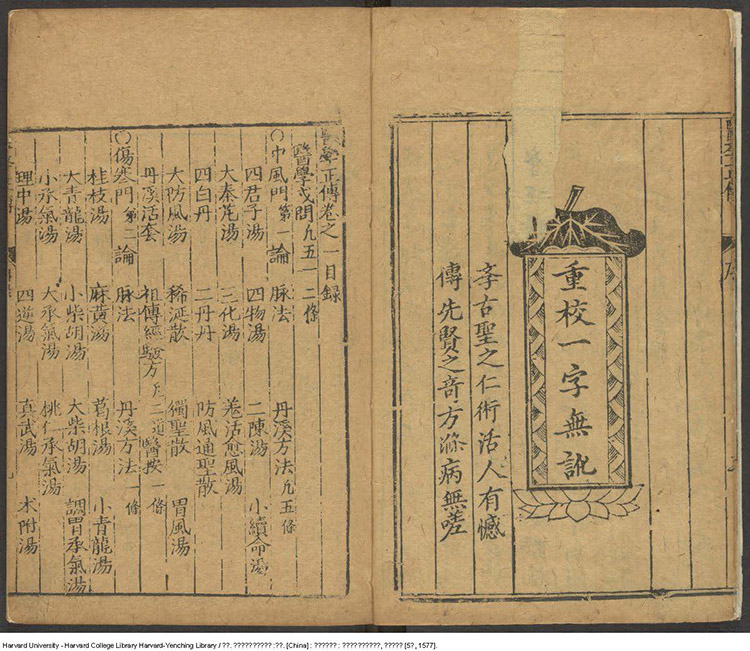 重校一字無訛
孝古聖之仁術活人有憾
傳先賢之奇方滌病無嗟
醫學正傳卷之一目録
醫學或問凡五一二條
〇中風門第一論 脉法 丹溪方法凡五條
四君子湯 四物湯 二陳湯 小續命湯
大秦艽湯 三化湯 羗活愈風湯
四白丹 二丹丹 防風通聖散
大防風湯 稀涎散 獨聖散 胃風湯
丹溪活套 祖傳經驗方凡二道 醫按一條
〇傷寒門第二論 脉法 丹溪方法一條
桂枝湯 麻黄湯 葛根湯 小青龍湯
大青龍湯 小柴胡湯 大柴胡湯 調胃承氣湯
小承氣湯 大承氣湯 桃仁承氣湯
理中湯 四逆湯 真武湯 术附湯
Harvard University - Harvard College Library Harvard-Yenching Library / ??. ?????????? :??. [China] : ?????? : ??????????, ????? [5?, 1577].